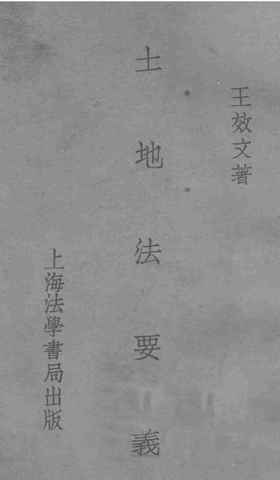 王效文著
土地法要義
上海法學書局出版